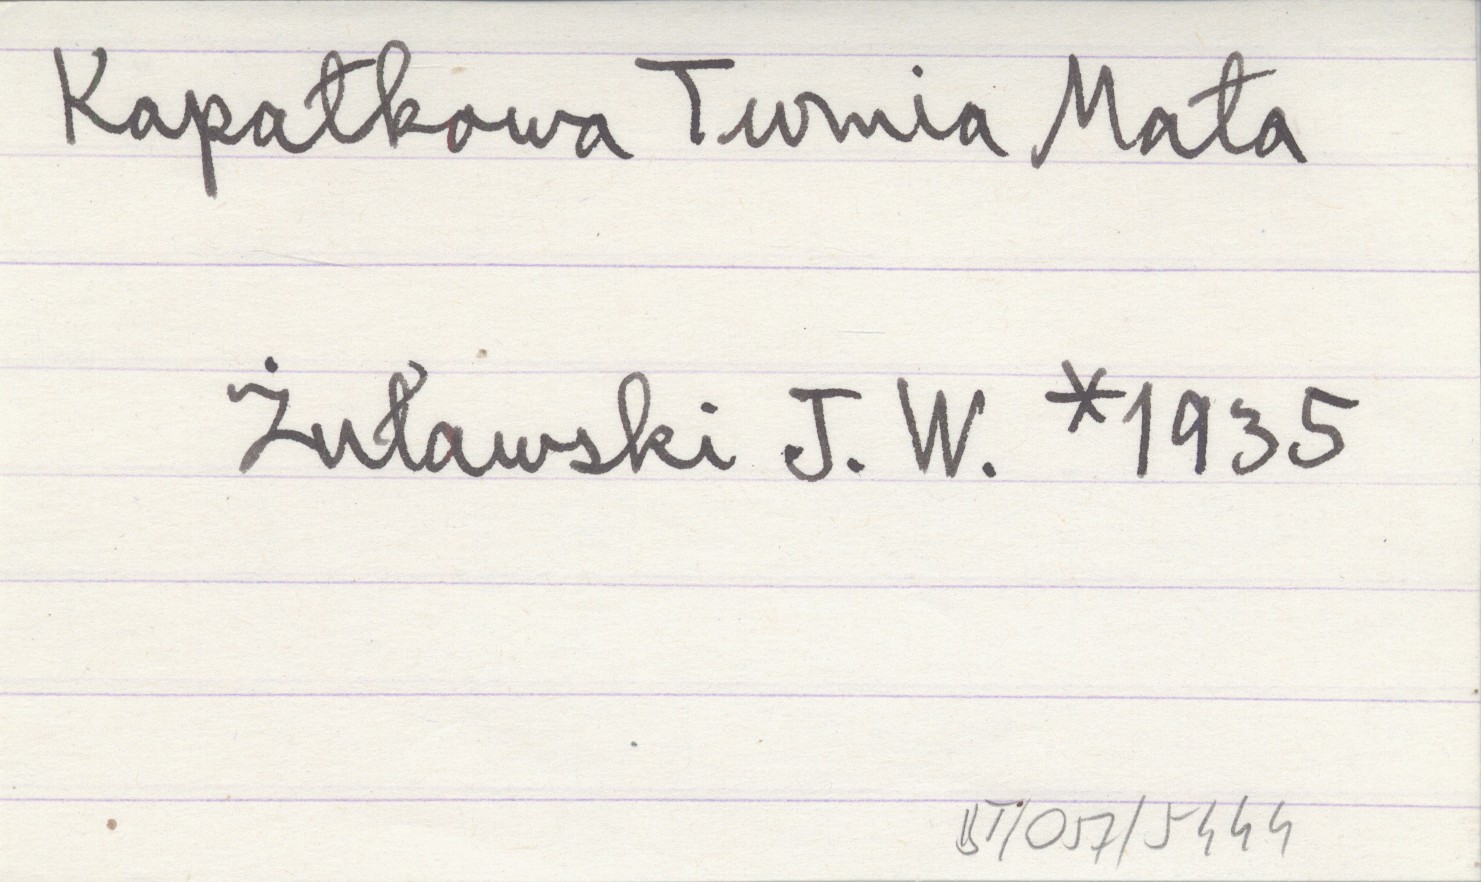 Kapałkowa Turnia Mała
Żuławski J. W. *1935
BT/057/5444